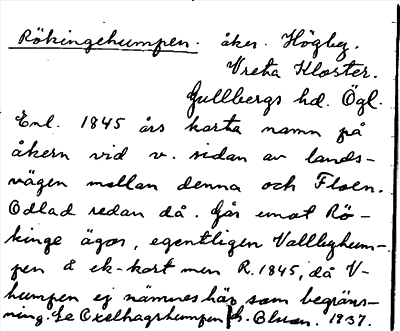 Rökingehumpen. åker. Högby.
Vreta Kloster.
Gullbergs hd. Ögl.
Enl. 1845 års karta namn på
åkern vid v. sidan av lands-
vägen mellan denna och Floen.
Odlad redan då. Går emot Rö-
kinge ägor, egentligen Vallbyhum-
pen å ek-kart men R. 1845, då V-
humpen ej nämnes här som begräns-
ning. Se Oxelhagshumpen. 1937.